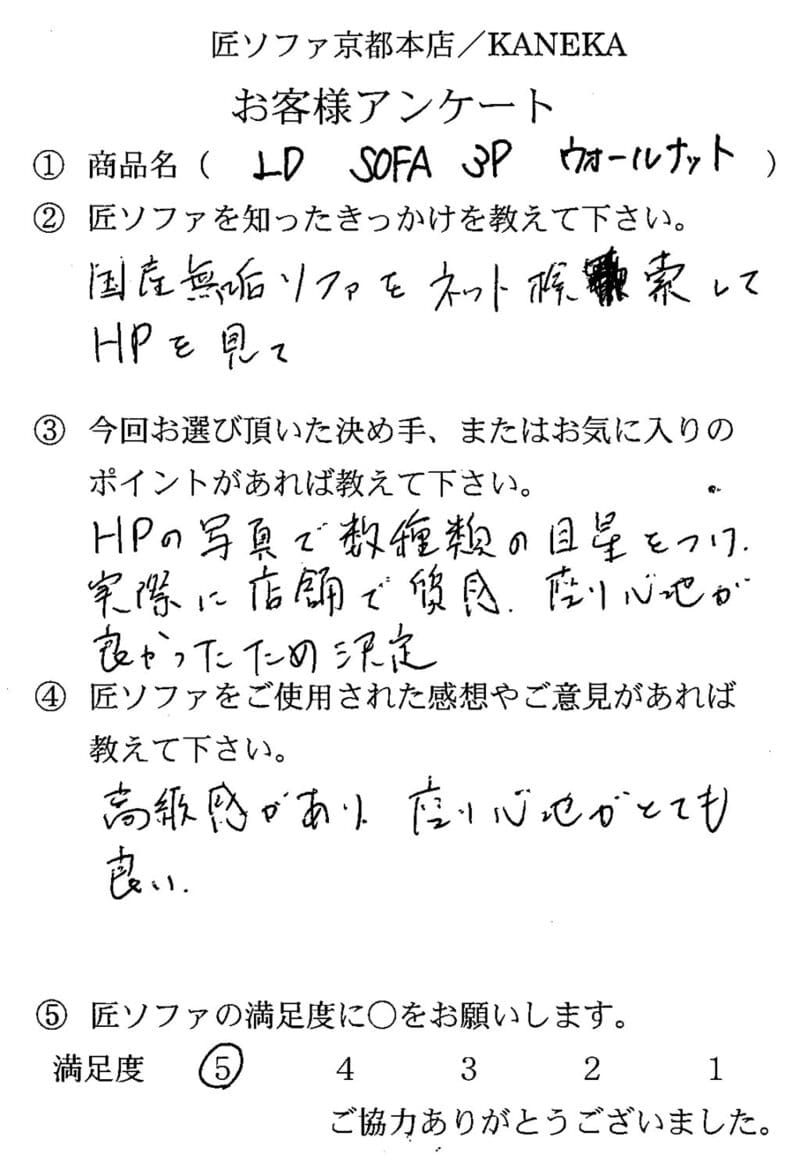 匠ソファ京都本店／KANEKA
お客様アンケート
① 商品名（ LD SOFA 3P ウォールナット ）
② 匠ソファを知ったきっかけを教えて下さい。
国産無垢ソファをネット検索して
HPを見て
③ 今回お選び頂いた決め手、またはお気に入りの
ポイントがあれば教えて下さい。
HPの写真で数種類の目星をつけ、
実際に店舗で質感、座り心地が
良かったため決定
④ 匠ソファをご使用された感想やご意見があれば
教えて下さい。
高級感があり、座り心地がとても
良い。
⑤ 匠ソファの満足度に○をお願いします。
満足度 5 4 3 2 1
ご協力ありがとうございました。